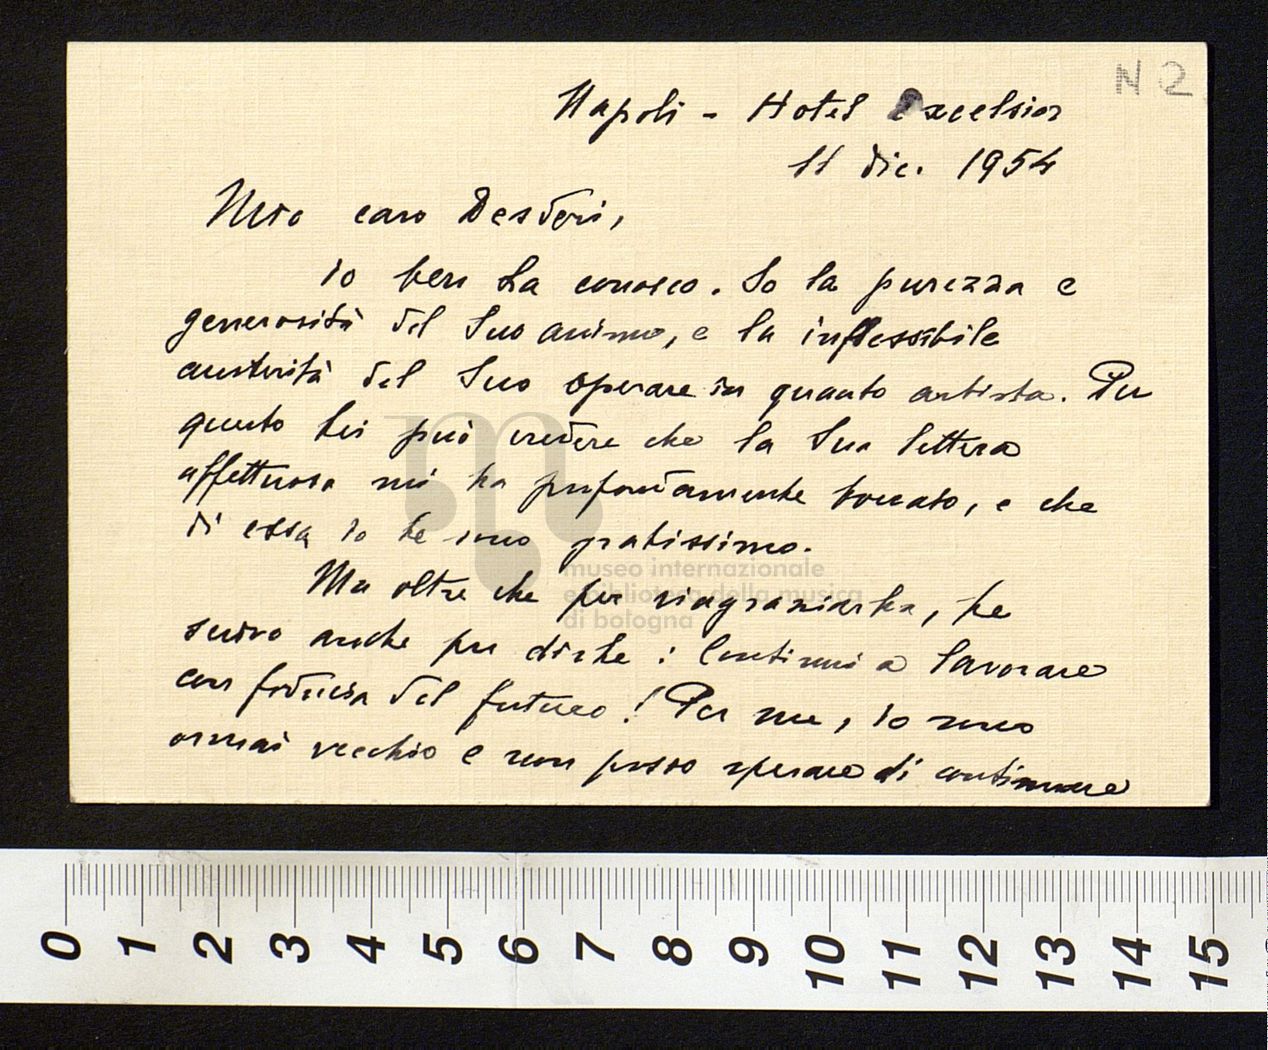 N 2
Napoli - Hotel Excelsior
11 dic. 1954
Mio caro Desderi,
io ben La conosco. So la purezza e
generosità del Suo animo, e la inflessibile
austerità del Suo operare in quanto artista. Per
questo Lei può credere che la Sua lettera
affettuosa mi ha profondamente toccato, e che
di essa io Le sono gratissimo.
Ma oltre che per ringraziarLa, Le
scrivo anche per dirLe: Continui a lavorare
con fiducia del futuro! Per me, io sono
ormai vecchio e non posso sperare di continuare
museo internazionale
e biblioteca della musica
di bologna
0 1 2 3 4 5 6 7 8 9 10 11 12 13 14 15